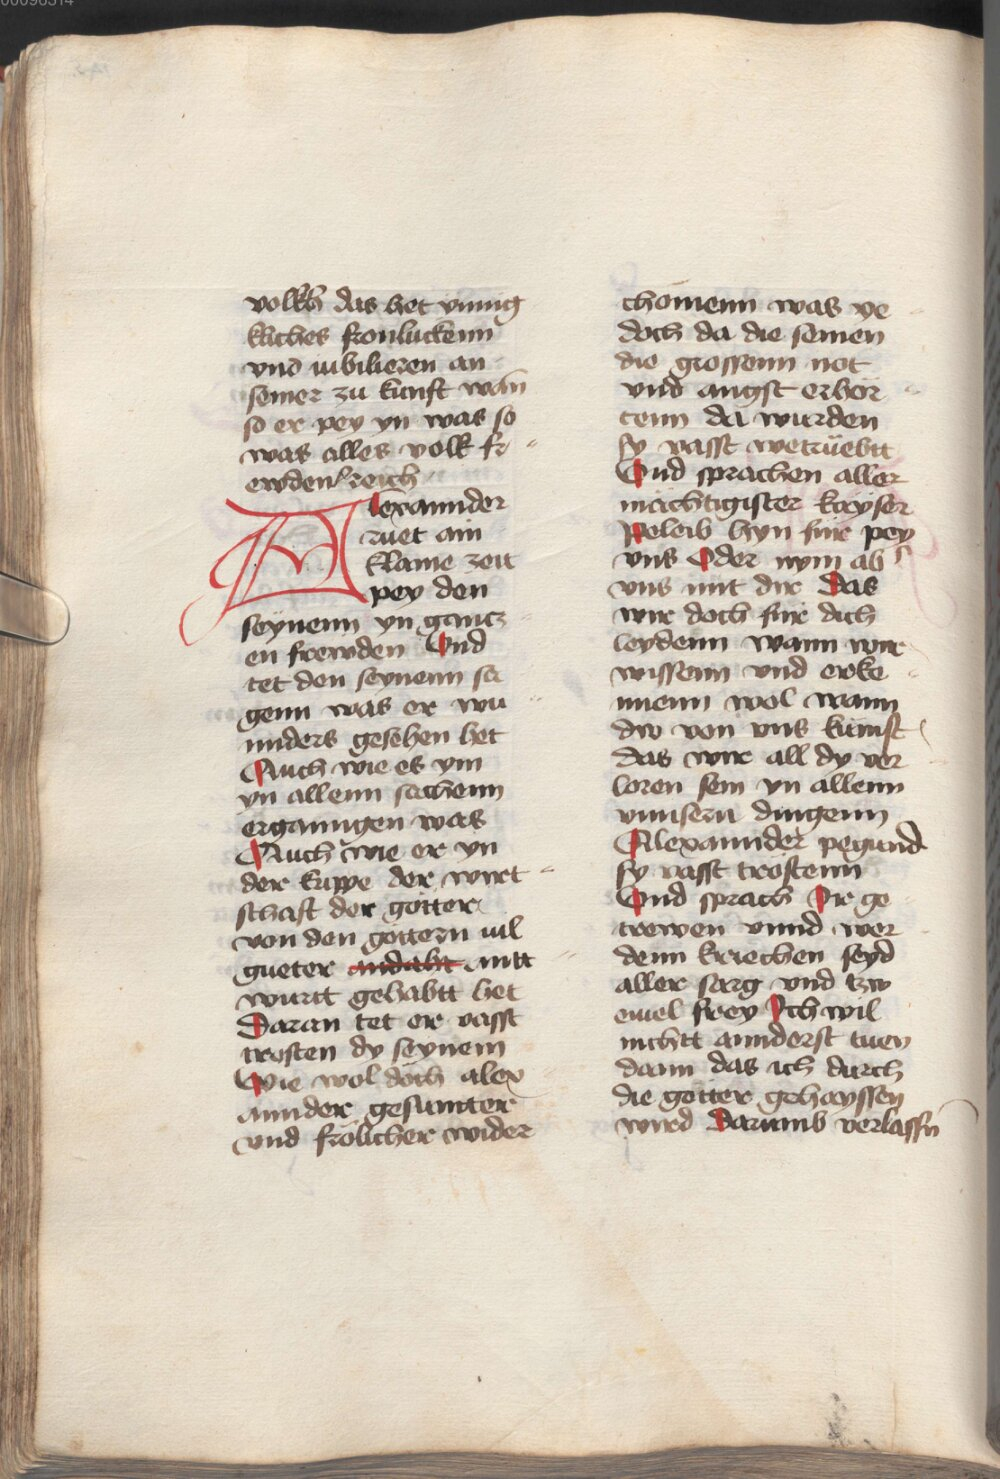 volkh das het ynnig
kliches fronluckenn
vnd iubilieren an
seiner zu kunft wan
so er pey yn was so
was alles volk fr
ewden reich
Alexannder
ruet ain
klaine zeit
pey den
seynenn yn gantz
en frewden Vnd
tet den seynenn sa
genn was er wu
nnders gesehen het
Auch wie es ym
yn allenn sachenn
erganngen was
Auch wie er yn
der kuppe der wirt
schaft der götter
von den göttern vil
gueter andaht mitt
wurtt gehabtt het
Daran tet er vasst
trosten dy seynem
Wie wol doch alex
annder gesunnter
und frölicher wider
chomenn was ye
doch da die seinen
die grossenn not
vnd angst erhör
tenn da wurden
sy vasst wetrüebtt
Vnd sprachen aller
mächtigister kayser
Peleib hyn für pey
vns Oder nym ab
vns mit dir Das
wir doch für dich
leydenn wann wir
wissenn vnd erke
nnenn wol wann
dw von vns kumst
das wir all dy ver
loren sein yn allenn
vnnsern dingenn
Alexannder pegund
sy vasst trostenn
Vnd sprach Ir ge
trewen vnnd wer
denn kriechen seyd
aller sarg vnd tzw
eiuel frey Ich wil
nichtt annderst tuen
dann das ich durch
die götter gehayssen
wird Darumb verlassn